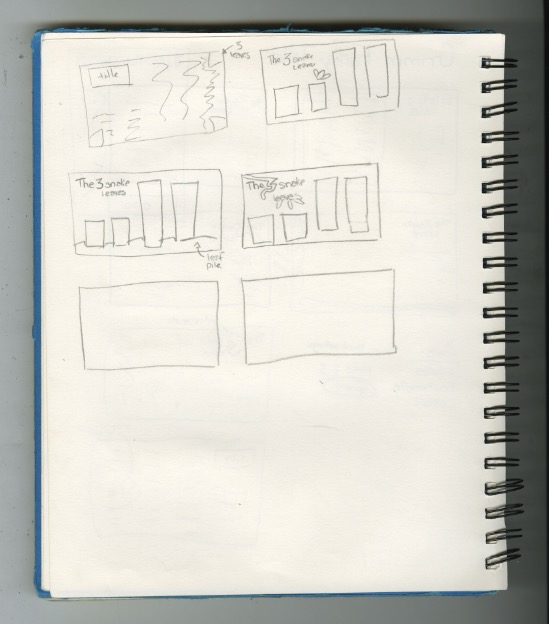 title
3
leaves
The 3 snake
Leaves
The 3 snake
Leaves
leaf
pile
The 3 snake
leaves